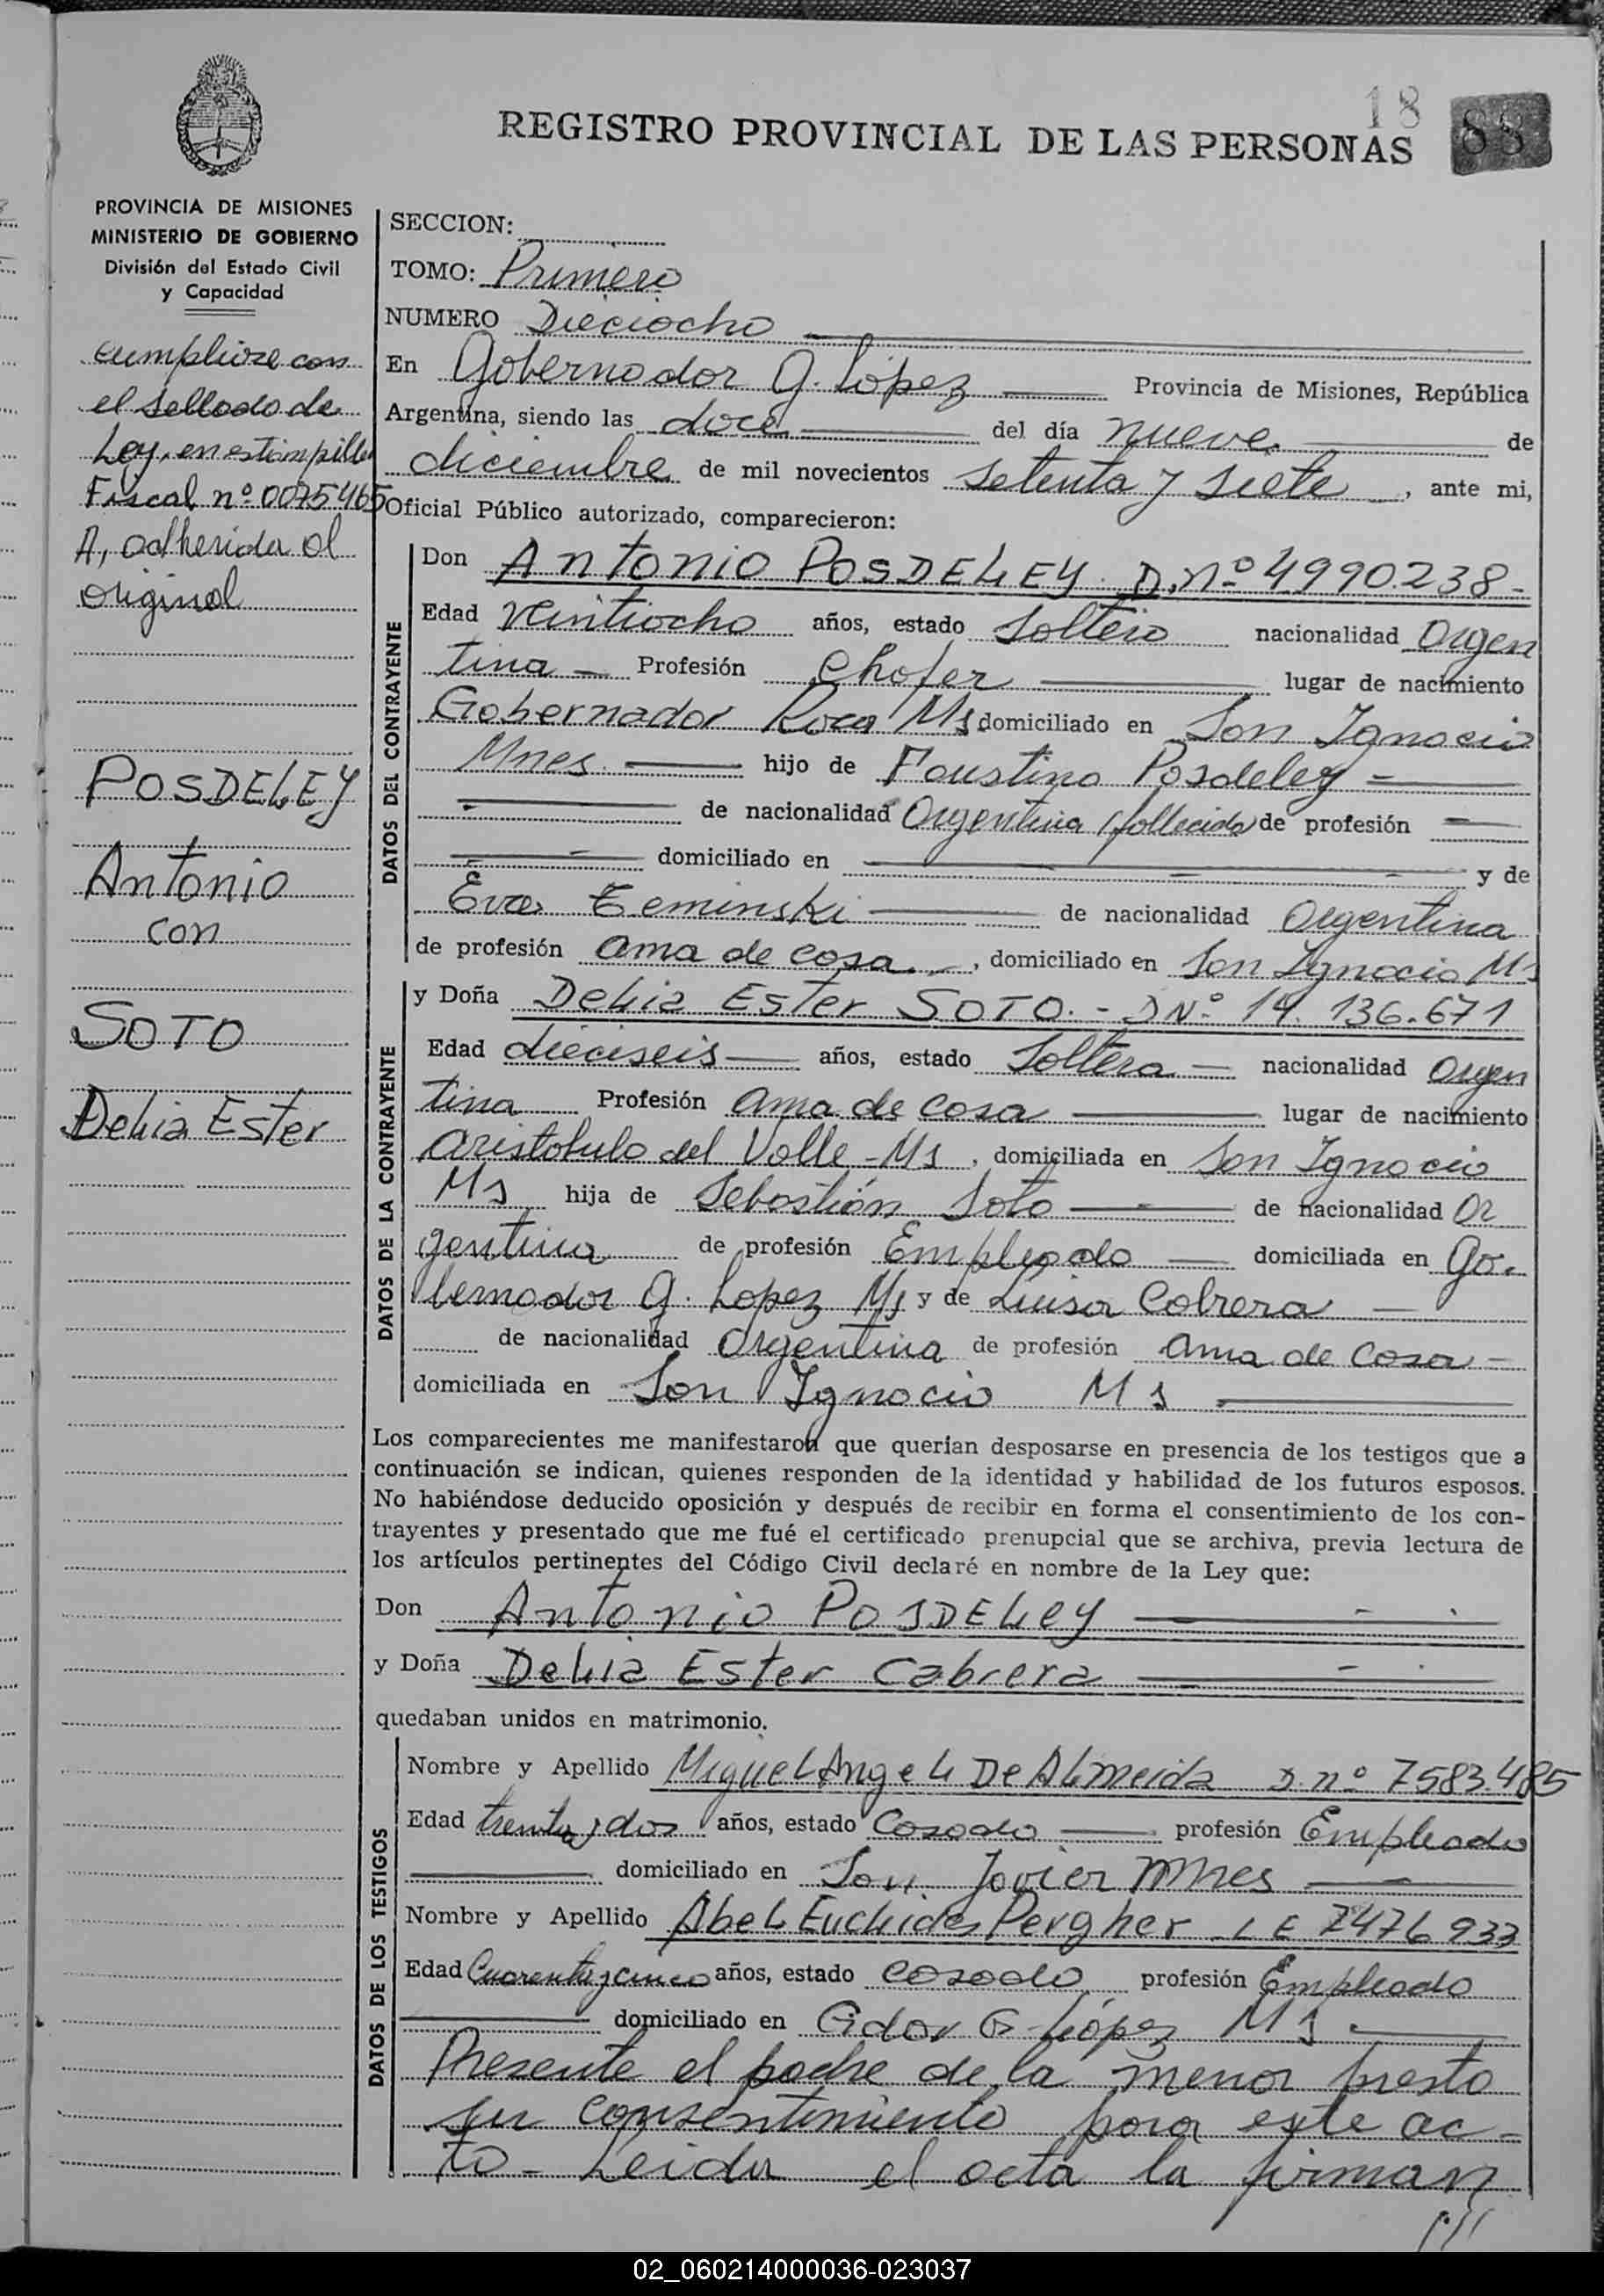 18
88
REGISTRO PROVINCIAL DE LAS PERSONAS
PROVINCIA DE MISIONES
MINISTERIO DE GOBIERNO
División del Estado Civil
y Capacidad
cumpliose con
el sellado de
Ley, en estampilla
Fiscal nº 0075465
A, adherida al
original
POSDELEY
Antonio
con
SOTO
Delia Ester
SECCION:
TOMO: Primero
NUMERO Dieciocho
En Gobernador G. López Provincia de Misiones, República
Argentina, siendo las doce del día nueve de
diciembre de mil novecientos setenta y siete, ante mi,
Oficial Público autorizado, comparecieron:
DATOS DEL CONTRAYENTE
Don Antonio POSDELEY. D.nº 4990.238-
Edad veintiocho años, estado soltero nacionalidad argen
tina - Profesión chofer lugar de nacimiento
Gobernador Roca Ms domiciliado en San Ignacio
Mnes. hijo de Faustino Posdeley
de nacionalidad Argentina (fallecido de profesión
domiciliado en y de
Eva Zeminski de nacionalidad argentina
de profesión ama de casa, domiciliado en San Ignacio Ms
DATOS DE LA CONTRAYENTE
y Doña Delia Ester SOTO.- DNº 14.136.671
Edad dieciseis años, estado soltera nacionalidad argen
tina Profesión ama de casa lugar de nacimiento
aristobulo del Valle - Ms, domiciliada en San Ignacio
Ms hija de Sebastián Soto de nacionalidad ar
gentina de profesión Empleado domiciliada en Go.
bernador G. Lopez Ms y de Luisa Cabrera
de nacionalidad argentina de profesión ama de casa -
domiciliada en San Ignacio Ms
Los comparecientes me manifestaron que querían desposarse en presencia de los testigos que a
continuación se indican, quienes responden de la identidad y habilidad de los futuros esposos.
No habiéndose deducido oposición y después de recibir en forma el consentimiento de los con-
trayentes y presentado que me fué el certificado prenupcial que se archiva, previa lectura de
los artículos pertinentes del Código Civil declaré en nombre de la Ley que:
Don Antonio POSDELEY
y Doña Delia Ester Cabrera
quedaban unidos en matrimonio.
DATOS DE LOS TESTIGOS
Nombre y Apellido Miguel Angel De Almeida D.nº 7583.485
Edad treinta y dos años, estado Casado profesión Empleado
domiciliado en San Javier Mnes
Nombre y Apellido Abel Euclides Pergher LE 7476933
Edad Cuarenta y cinco años, estado casado profesión Empleado
domiciliado en Gdor G López Ms
Presente el padre de la menor presto
su consentimiento para este ac-
to - Leida el acta la firman
02_060214000036-023037